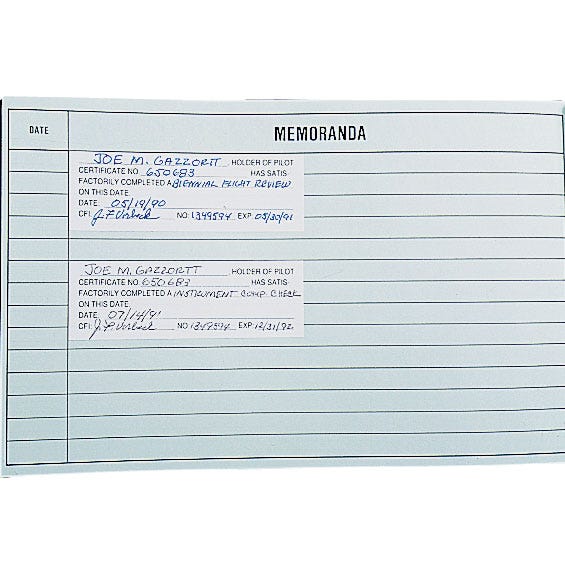 DATE MEMORANDA
JOE M. GAZZORTT, HOLDER OF PILOT
CERTIFICATE NO. 650683 HAS SATIS-
FACTORILY COMPLETED A BIENNIAL FLIGHT REVIEW
ON THIS DATE.
DATE: 05/19/90
CFI: NO: 1349594 EXP: 05/30/91
JOE M. GAZZORTT, HOLDER OF PILOT
CERTIFICATE NO. 650683 HAS SATIS-
FACTORILY COMPLETED A INSTRUMENT COMP. CHECK
ON THIS DATE.
DATE: 07/14/91
CFI: NO: 1349594 EXP: 12/31/92